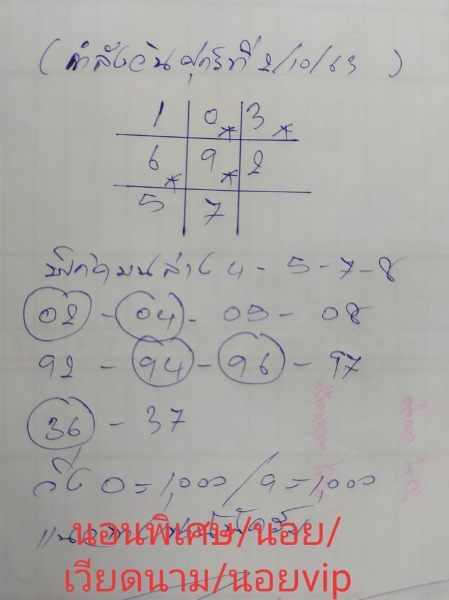 (กำลังวันศุกร์ที่ 2/10/63)
1 0* 3*
6* 9* 2
5 7
บนล่าง 4-5-7-8
02-04-05-08
92-94-96-97
36-37
วิ่ง 0=1,000/9=1,000
นอนพิเศษ/นอย/
เวียดนาม/นอยvip